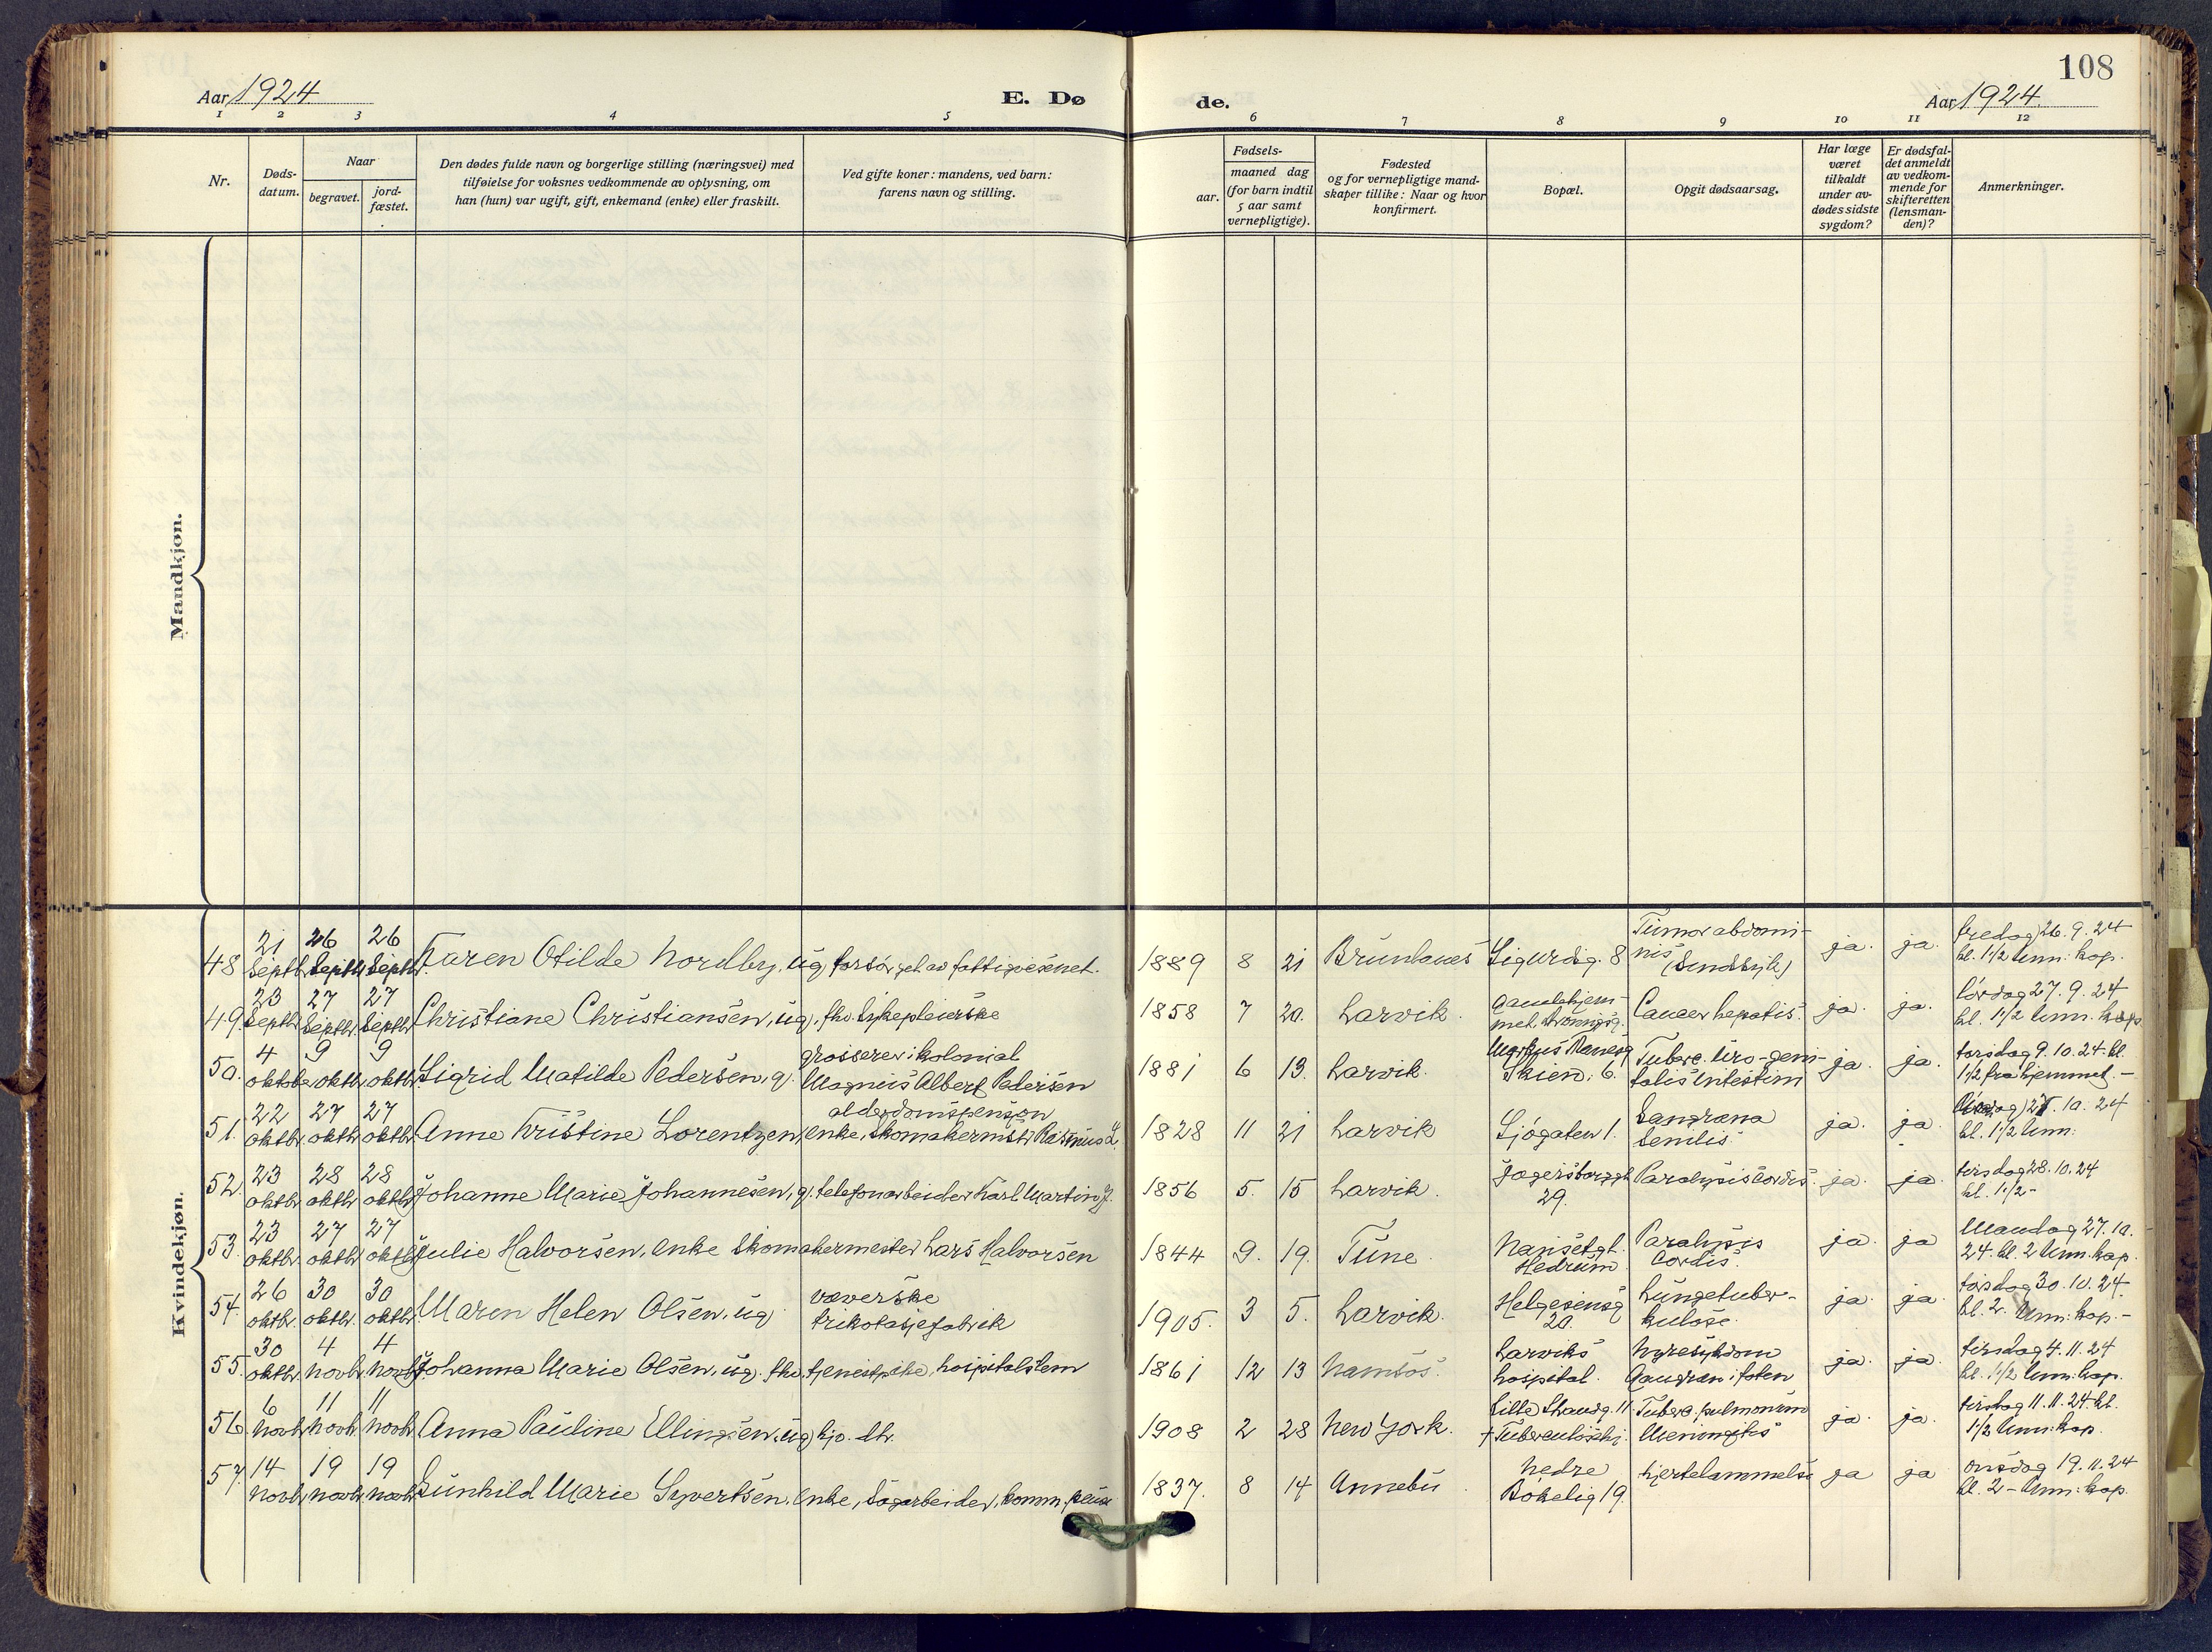 108
Aar 1924
E. Dø
de.
Aar 1924.
1 2 3 4 5 6 7 8 9 10 11 12
Nr.
Døds-
datum.
Naar
begravet.
jord-
fæstet.
Den dødes fulde navn og borgerlige stilling (næringsvei) med
tilføielse for voksnes vedkommende av oplysning, om
han (hun) var ugift, gift, enkemand (enke) eller fraskilt.
Ved gifte koner: mandens, ved barn:
farens navn og stilling.
aar.
Fødsels-
maaned dag
(for barn indtil
5 aar samt
vernepligtige).
Fødested
og for vernepligtige mand-
skaper tillike: Naar og hvor
konfirmert.
Bopæl.
Opgit dødsaarsag.
Har læge
været
tilkaldt
under av-
dødes sidste
sygdom?
Er dødsfal-
det anmeldt
av vedkom-
mende for
skifteretten
(lensman-
den)?
Anmerkninger.
Mandkjøn.
Kvindekjøn.
48 21 septbr. 26 septbr. 26 septbr. Karen Otilde Nordby, ug, forsørget av fattigvesenet. 1889 8 21 Brunlanes Sigurdsg. 8 Tumor abdomi-
nis ja. ja. fredag 26. 9. 24
kl. 1 1/2 Unn: kap.
49. 23 septbr. 27 septbr. 27 septbr. Christiane Christiansen, ug, fhv. sykepleierske 1858 7 20. Larvik. Gamlehjem-
met Cancer hepatis. ja. ja. lördag 27. 9. 24
kl. 1 1/2 Unn. kap
50. 4 oktobr. 9 oktbr. 9 oktbr. Sigrid Matilde Pedersen, g. grosserer i kolonial
Magnus Albert Pedersen 1881 6 13. Larvik.
Skien. 6. Tuberc. Uro-geni-
talis intestin ja. ja. torsdag 9. 10. 24 kl.
1 1/2 fra hjemmet. -
51. 22 oktbr. 27 oktbr. 27 oktbr. Anne Kristine Lorentzen, alderdomspension
enke, skomakermstr. Rasmus L. 1828 11 21 Larvik Sjögaten 1. Gangræna
senilis. ja. ja. 10. 24
kl. 1 1/2 Unn:
52. 23 oktbr. 28 oktbr. 28 oktbr. Johanne Marie Johannesen, g. telefonarbeider Karl Martin J. 1856 5. 15 Larvik. Jegersborggt.
29. Paralysis cordis. ja. ja. tirsdag 28. 10. 24
kl. 1 1/2 -
53. 23 oktbr. 27 oktbr. 27 oktbr. Julie Halvorsen, enke skomakermester Lars Halvorsen 1844 9. 19. Tune. Nansetgt.
Hedrum Paralysis
cordis. ja. ja Mandag 27. 10.
24. kl. 2 Unn. kap.
54. 26 oktbr. 30 oktbr. 30 oktbr. Maren Helen Olsen, ug væverske
trikotasjefabrik 1905. 3 5. Larvik. Helgesensg
20. Lungetuber-
kulose. ja. ja. torsdag 30. 10. 24.
kl. 2. Unn: kap. -
55. 30 oktbr. 4 novbr. 4 novbr. Johanna Marie Olsen, ug. fhv. tjenestpike, hospitalslem 1861 12 13 Namsos. Larviks
hospital. Nyresykdom
Gangræn i foten ja. ja. tirsdag 4. 11. 24
kl. 1 1/2 Unn: kap.
56. 6 novbr. 11 novbr. 11 novbr. Anna Pauline Ellingsen, ug hjv. dtr. 1908 2 28 New York. Lille Strandg. 11
+ Tuberculosehj. Tuberc. pulmonum
Meningitis ja. ja. tirsdag 11. 11. 24. kl.
1 1/2 Unn: kap.
57. 14 novbr. 19 novbr. 19 novbr. Gunhild Marie Syvertsen, enke, sagarbeider, komm. pens 1837. 8 14 Annebu. Nedre
Bökelig 19. hjertelammelse ja ja onsdag 19. 11. 24
kl. 2 - Unn: kap.